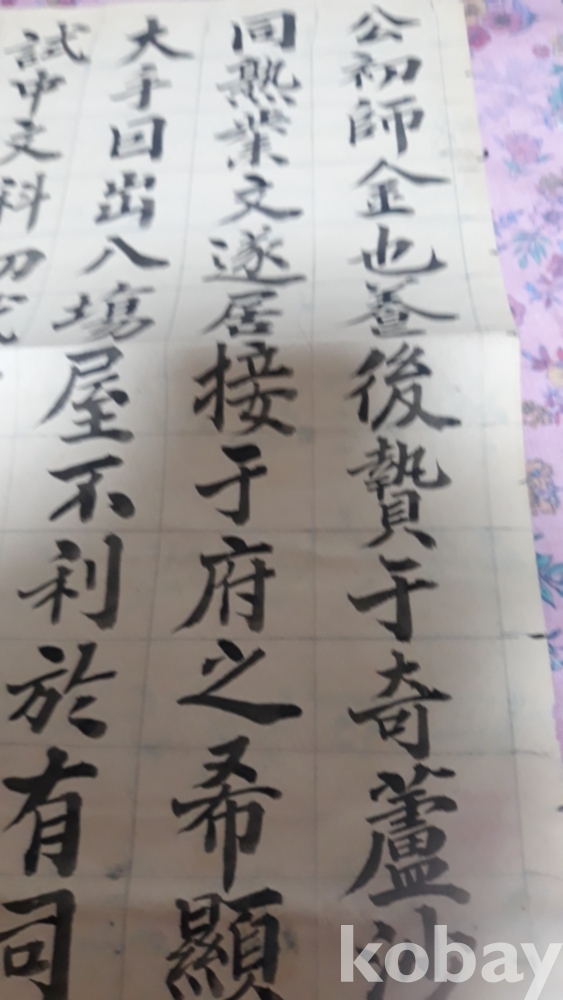 公初師金也盖後贄于奇蘆沙
同熟業文遂居接于府之希顯
大手回出入塲屋不利於有司
試中文科初
kobay